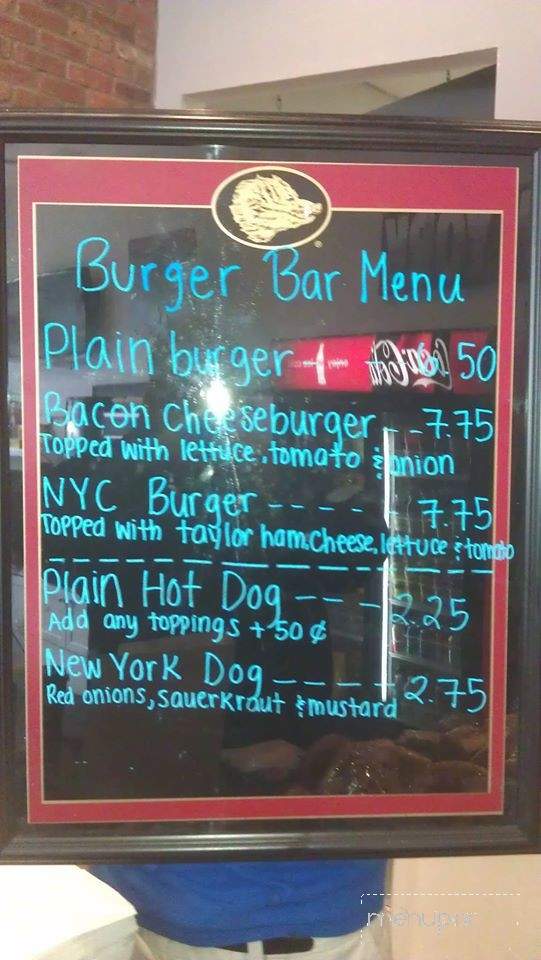 Burger Bar Menu
Plain burger 50
Bacon cheeseburger - - 7.75
Topped with lettuce, tomato & onion
NYC Burger - - - - - 7.75
Topped with taylor ham, cheese, lettuce & tomato
Plain Hot Dog - - - 2.25
Add any toppings + 50 ¢
New York Dog - - - - 2.75
Red onions, sauerkraut & mustard
Coca-Cola
menupix